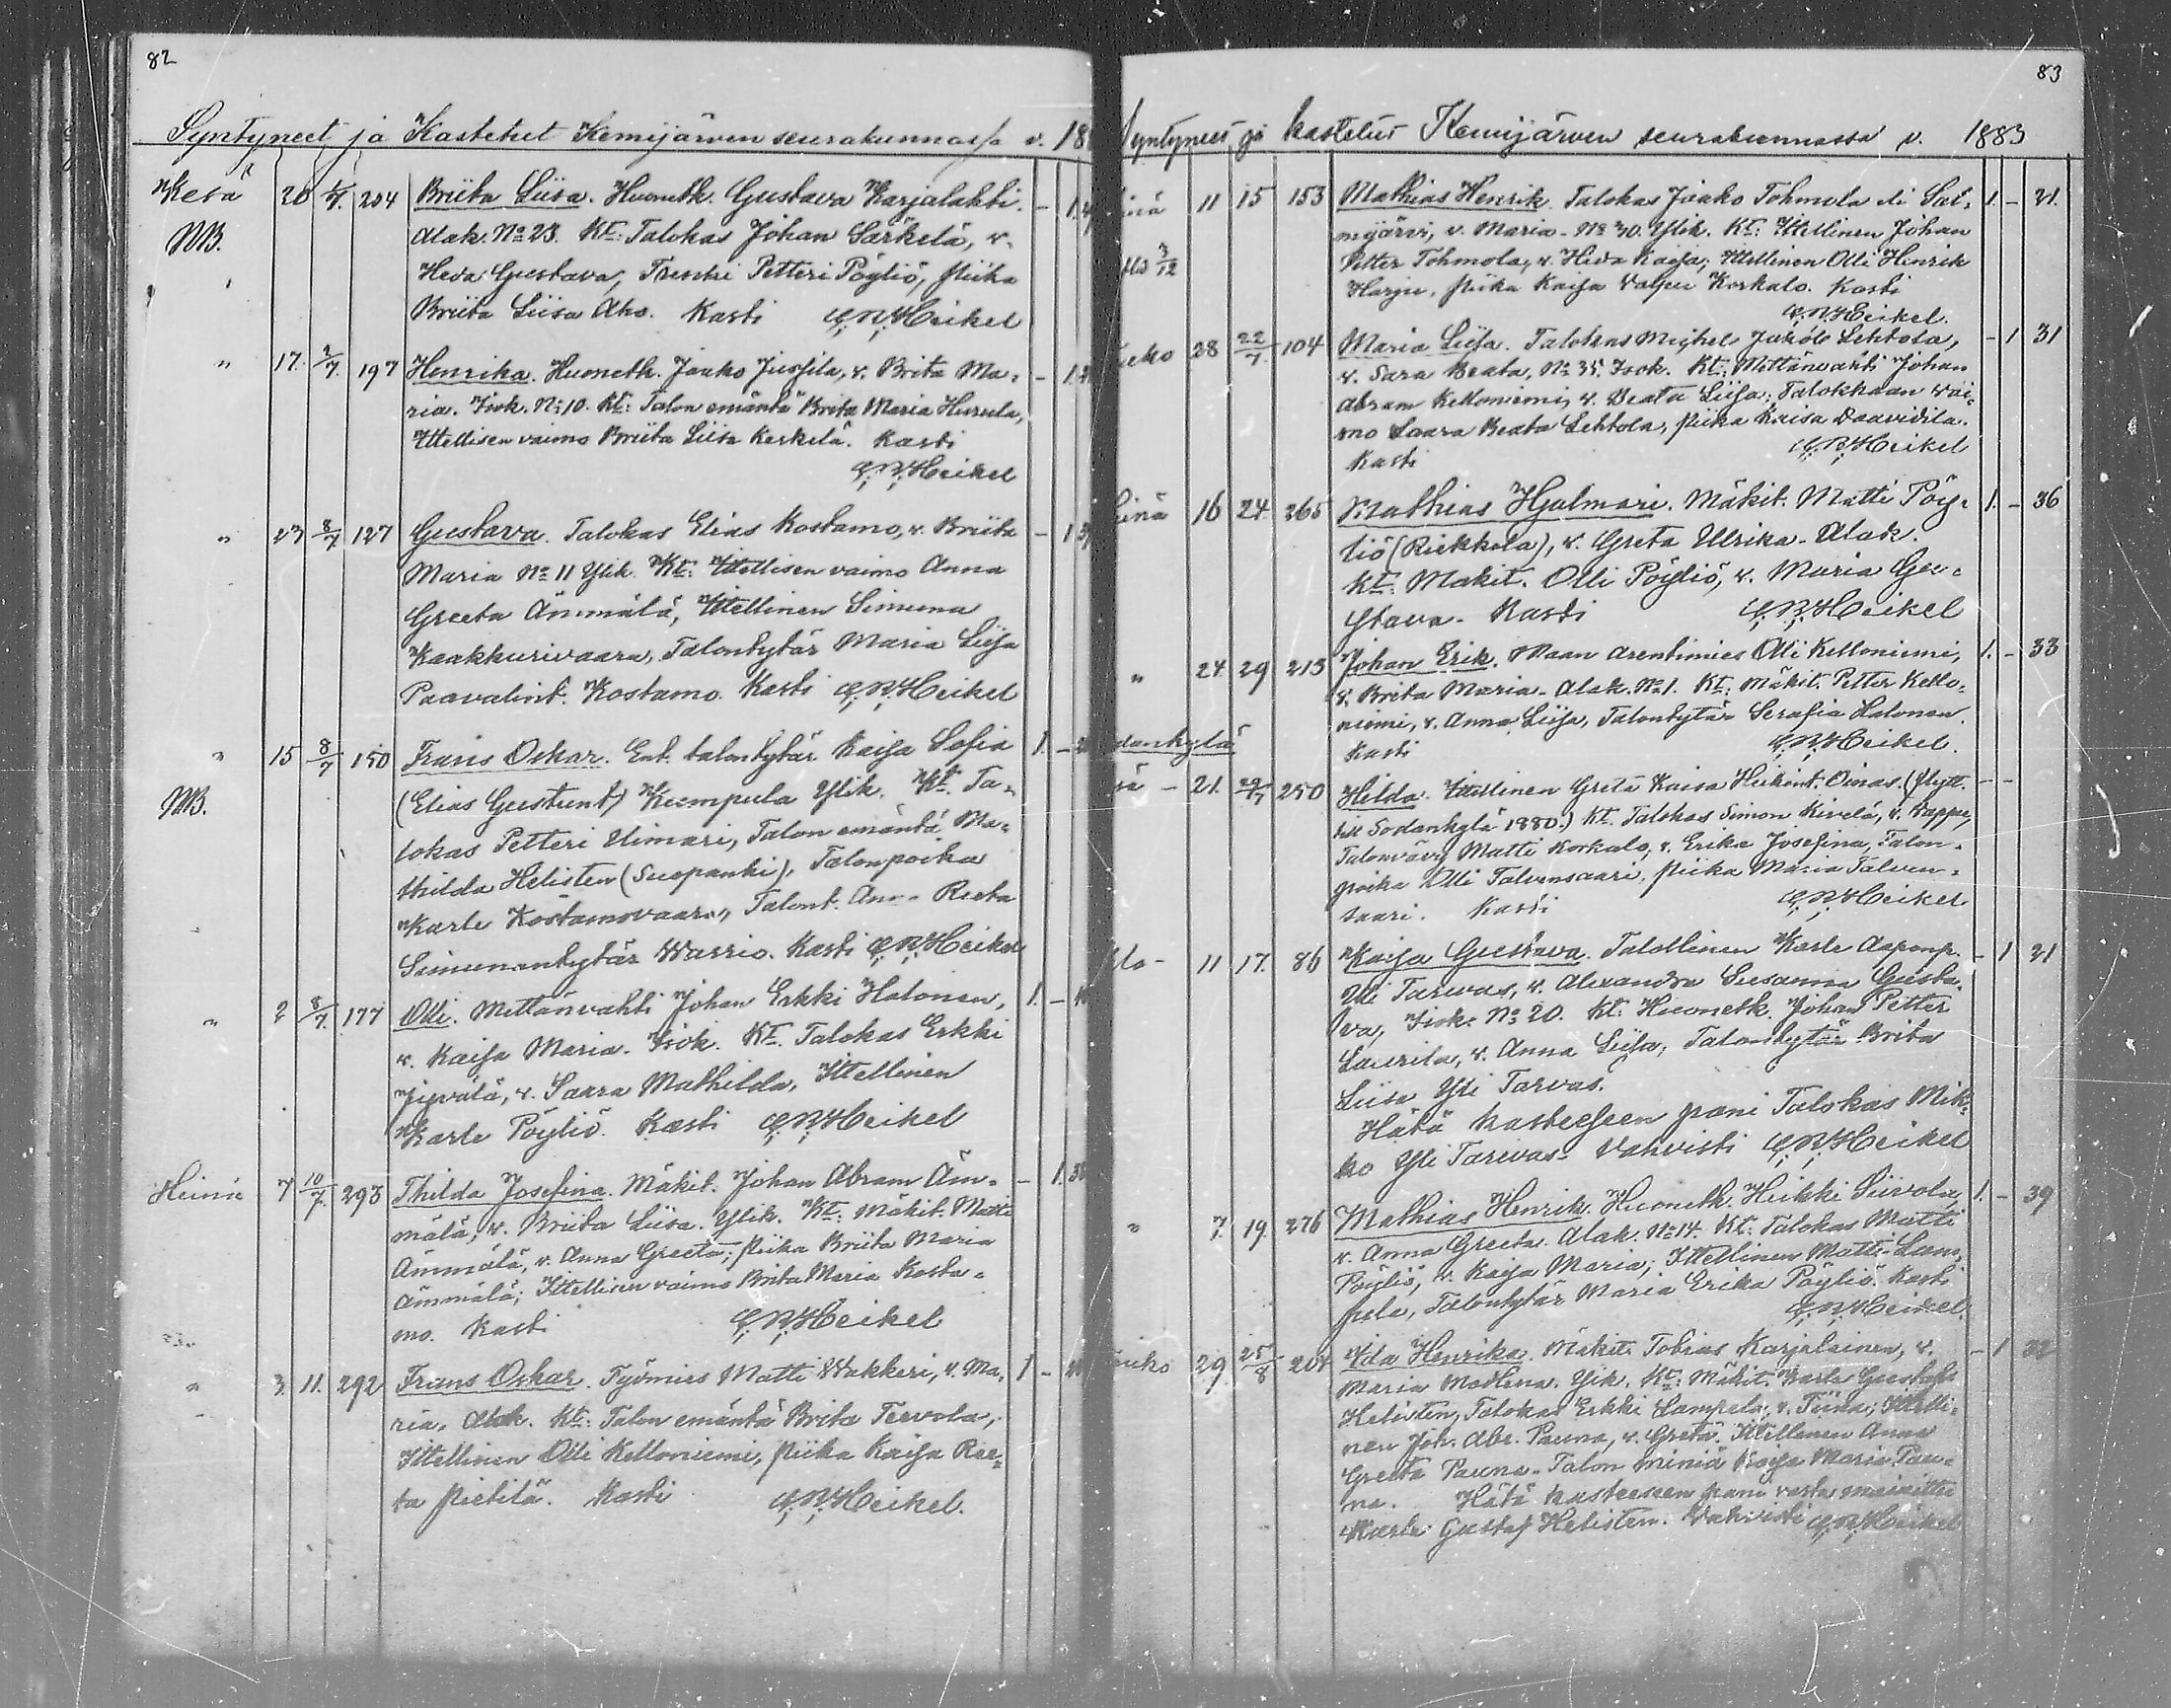 82
Syntyneet ja Kastetut Kemijärven seurakunnassa v. 18
Kesä 20 204 Briita Liisa. Huonetk. Gustava Karjalahti. - 1.
NB. Alak. No 23. Kt: Talokas Johan Särkelä, v.
Heva Gustava, Trenki Petteri Pöyliö, Piika
Briita Liisa Aho. Kasti Heikel
" 17. 2/7 197 Henrika. Huonetk. Jaako Jussila, v. Brita Ma-
ria. Isok. No 10. Kt: Talon emäntä Brita Maria Hurula,
Ittellisen vaimo Briita Liisa Kerkelä. Kasti
Heikel
" 23 8/7 127 Gustava. Talokas Elias Kostamo, v. Briita - 1
Maria No 11 Ylik. Kt: Ittellisen vaimo Anna
Greeta Ämmälä, Ittellinen Simuna
Kaakkurivaara, Talontytär Maria Liisa
Paavalint. Kostamo. Kasti Heikel
" 15 8/7 150 Frans Oskar. Ent. talontytär Kaisa Sofia 1. -
NB. (Elias Gustunt) Kumpula Ylik. Kt. Ta-
lokas Petteri Uimari, Talon emäntä Ma-
thilda Helisten (Suopanki), Talonpoika
Karle Kostamovaara, Talont. Reeta
Simunantytär Warrio. Kasti Heikel
" 2 8/7. 177 Olli. Mettänvahti Johan Erkki Halonen, 1. -
v. Kaisa Maria. Isok. Kt. Talokas Erkki
Jyvälä, v. Saara Mathilda, Ittellinen
Karle Pöyliö. Kasti Heikel
Heinä 7 10/7. 293 Thilda Josefina. Mäkit. Johan Abram Äm- - 1.
mälä, v. Briita Liisa. Ylik. Kt: Mäkit. Matti
Ämmälä, v. Anna Greeta; Piika Briita Maria
Ämmälä; Ittellisen vaimo Brita Maria Kosta-
mo. Kasti Heikel
" 3. 11. 292 Frans Oskar. Työmies Matti Wakkeri, v. Ma- 1 -
ria. Alak. Kt: Talon emäntä Brita Tervola,
Ittellinen Olli Kelloniemi, Piika Kaisa Ree-
ta Pietilä. Kasti Heikel.
83
Syntyneet ja kastetut Kemijärven seurakunnassa v. 1883
11 15 153 Mathias Henrik. Talokas Jaako Tohmola eli Sal- 1. - 21.
mijärvi, v. Maria. No 30. Ylik. Kt: Ittellinen Johan
3/12 Petter Tohmola, v. Heva Kaisa; Ittellinen Olli Henrik
Harju, Piika Kaisa Valpu Korkalo. Kasti
Heikel.
28 22/7. 104 Maria Liisa. Talokas Mighel Jakob Lehtola, - 1 31
v. Sara Beata, No 35. Isok. Kt: Mettänvahti Johan
Abram Kelloniemi, v. Beata Liisa; Talokkaan vai-
mo Saara Beata Lehtola, Piika Kaisa Daavidila.
Kasti Heikel
16 24. 265 Mathias Hjalmari. Mäkit. Matti Pöy- 1. - 36
liö (Riekkola), v. Greta Ulrika. Alak.
Kt: Mäkit. Olli Pöyliö, v. Maria Gu-
stava. Kasti Heikel
" 24 29 213 Johan Erik. Maan arentimies Olli Kelloniemi, 1. - 33
v. Brita Maria. Alak. No 1. Kt: Mäkit. Petter Kello-
niemi, v. Anna Liisa, Talontytär Serafia Halonen.
Kasti Heikel.
21. 29/7 250 Hilda. Ittellinen Greta Kaisa Heikint. Oinas. (flytt. - -
till Sodankylä 1880.) Kt. Talokas Simon Kivelä, v. Kappu,
Talonvävy Matti Korkalo, v. Erika Josefina, Talon-
poika Olli Talvensaari. Piika Maria Talven-
saari. Kasti Heikel
11 17. 86 Kaisa Gustava. Talollinen Karle Aaponp. - 1 21
Yli Tarvas, v. Alexandra Susanna Gusta-
va, Isok. No 20. Kt: Huonetk. Johan Petter
Laurila, v. Anna Liisa, Talontytär Brita
Liisa Yli Tarvas.
Hätä kasteeseen pani Talokas Mik-
ko Yli Tarvas. Vahvisti Heikel
" 7. 19. 276 Mathias Henrik. Huonetk. Heikki Siivola, 1. - 39
v. Anna Greeta. Alak. No 14. Kt: Talokas Matti
Pöyliö, v. Kaisa Maria; Ittellinen Matti Lam-
pela, Talontytär Maria Erika Pöyliö. Kasti
Heikel.
29 25/8 204 Ida Henrika. Mäkit. Tobias Karjalainen, v. - 1 32
Maria Madlena. Ylik. Kt: Mäkit. Karle Gustaf
Helisten, Talokas Erkki Lampela, v. Tiina; Ittelli-
nen Joh. Abr. Pauna, v. Greta. Ittellinen Anna
Greeta Pauna. Talon miniä Kaisa Maria Pau-
na. Hätä kasteeseen pani vasta mainittu
Karle Gustaf Helisten. Vahvisti Heikel